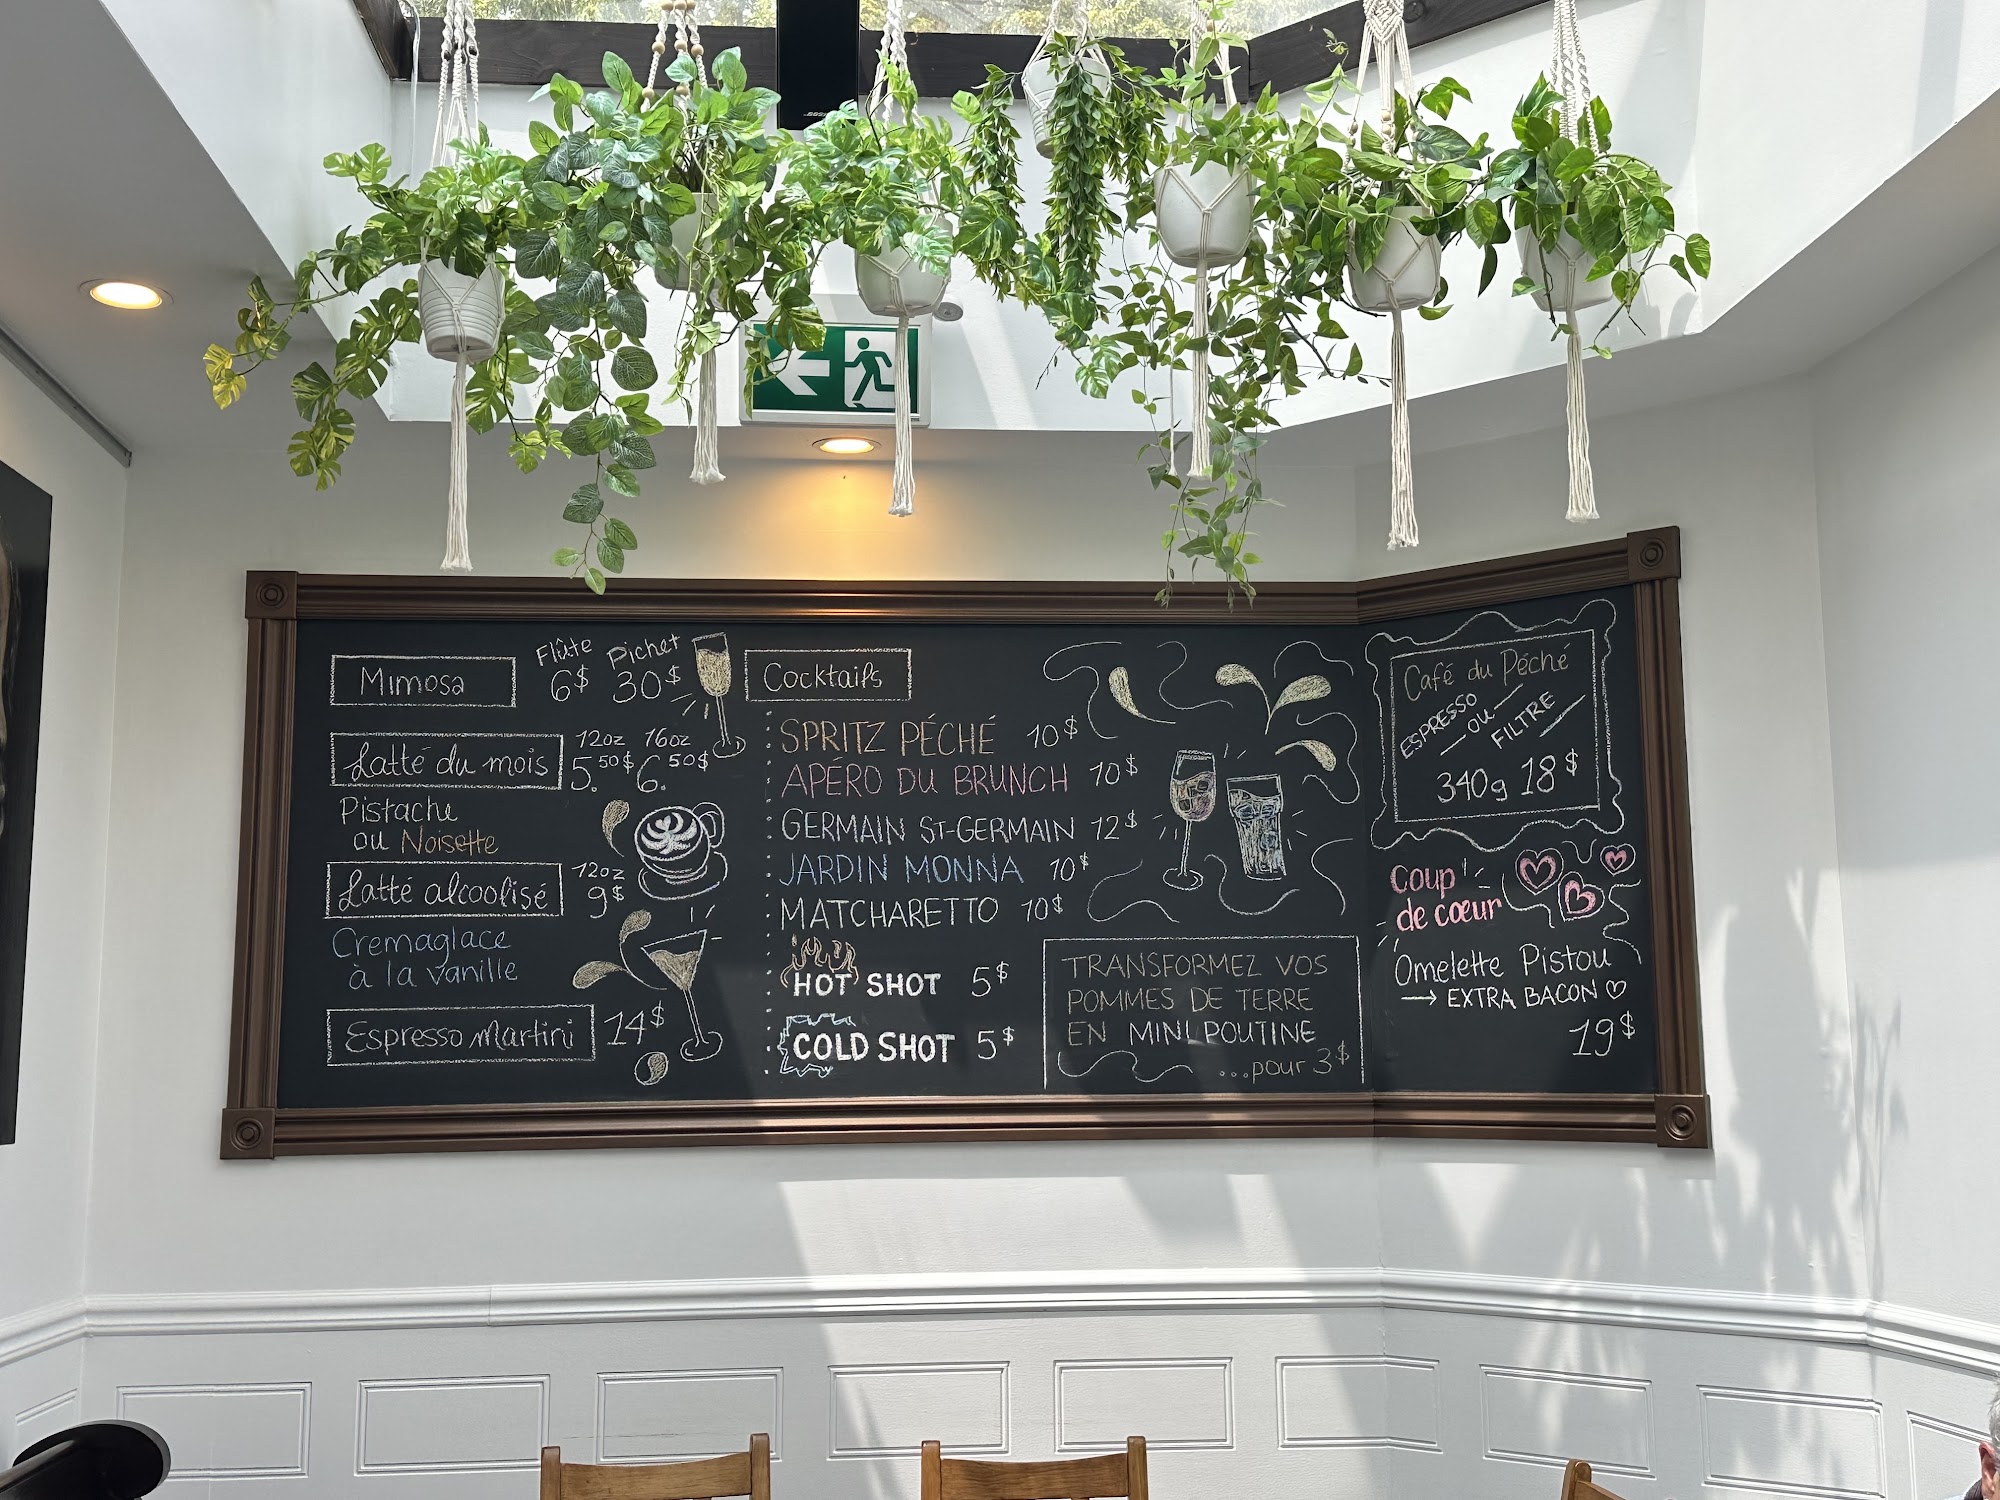 Mimosa
Flûte Pichet
6$ 30$
Latté du mois
12oz 16oz
5.50$ 6.50$
Pistache
ou Noisette
Latté alcoolisé
12oz
9$
Cremaglace
à la vanille
Espresso Martini 14$
Cocktails
SPRITZ PÉCHÉ 10$
APÉRO DU BRUNCH 10$
GERMAIN ST-GERMAIN 12$
JARDIN MONNA 10$
MATCHARETTO 10$
HOT SHOT 5$
COLD SHOT 5$
TRANSFORMEZ VOS
POMMES DE TERRE
EN MINI POUTINE
...pour 3$
Café du Péché
ESPRESSO
OU
FILTRE
340g 18$
Coup
de cœur
Omelette Pistou
→ EXTRA BACON ♡
19$